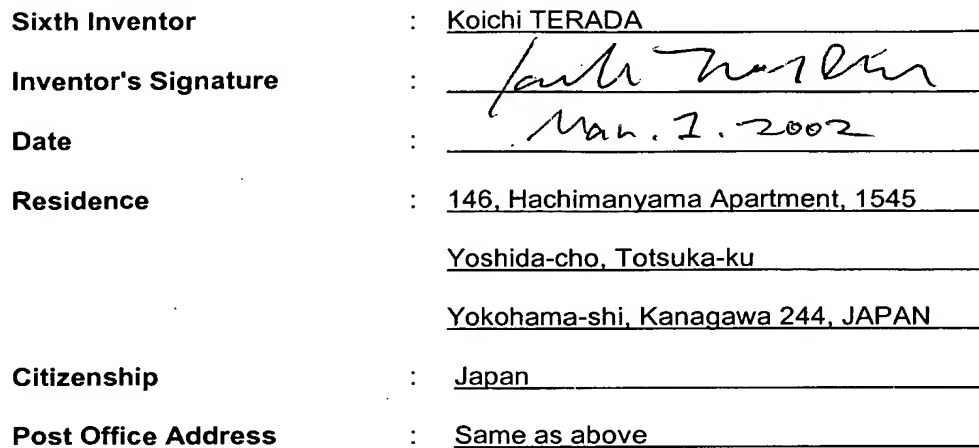 Sixth Inventor : Koichi TERADA
Inventor's Signature :
Date : Mar. 1. 2002
Residence : 146, Hachimanyama Apartment, 1545
Yoshida-cho, Totsuka-ku
Yokohama-shi, Kanagawa 244, JAPAN
Citizenship : Japan
Post Office Address : Same as above